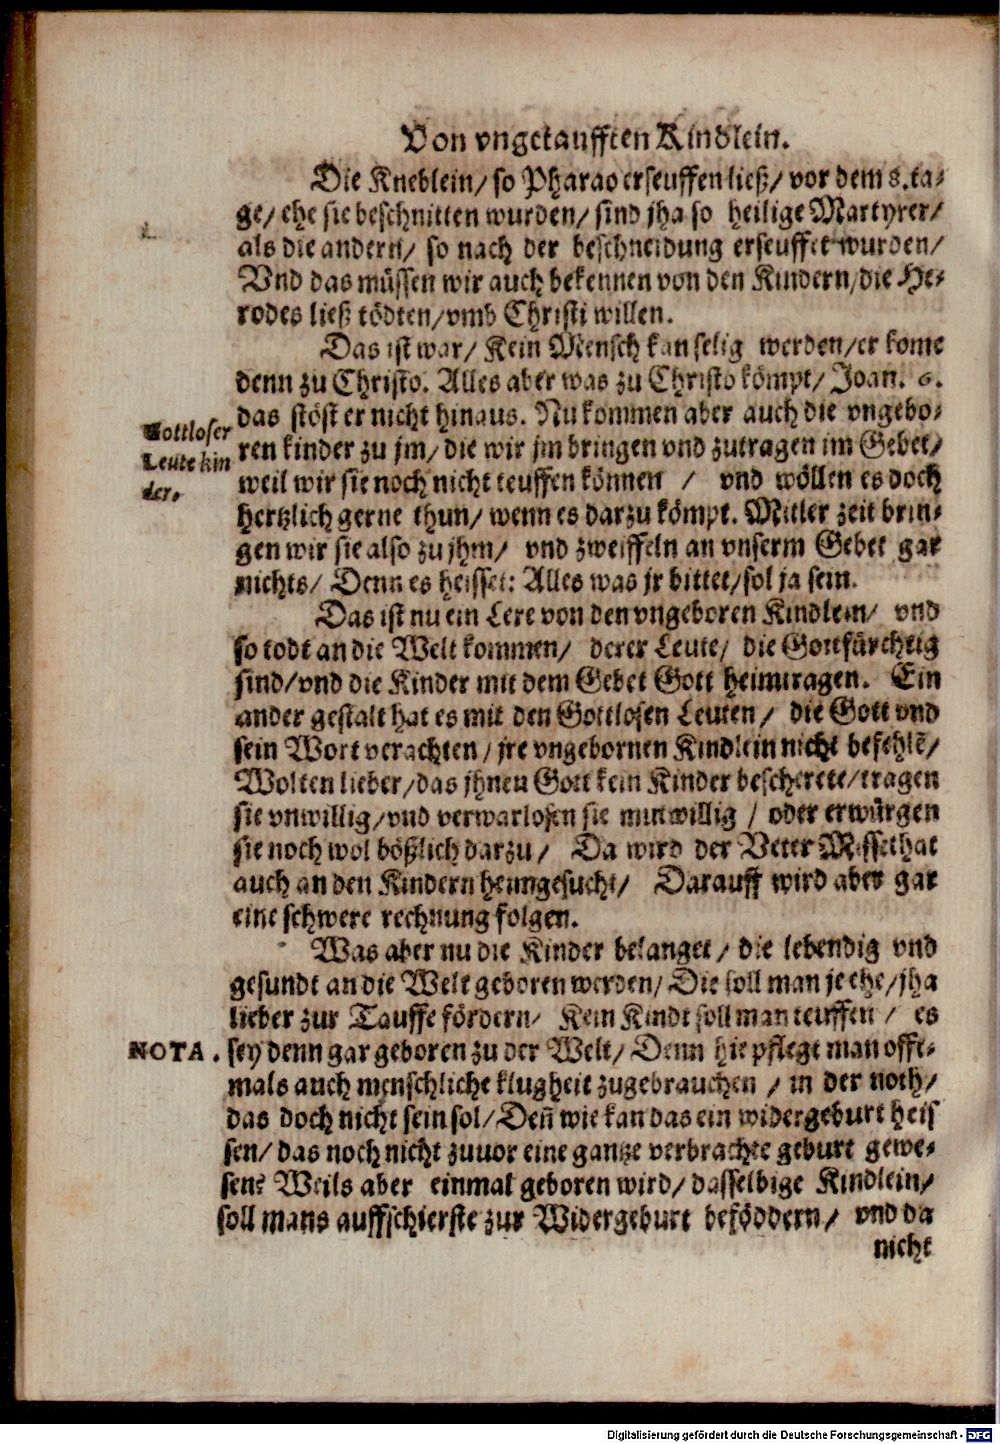 Von vngetaufften Kindlein.
Die Kneblein/ so Pharao erseuffen ließ/ vor dem 8. ta-
ge/ ehe sie beschnitten wurden/ sind jha so heilige Martyrer/
als die andern/ so nach der beschneidung erseuffet wurden/
Vnd das müssen wir auch bekennen von den Kindern/ die He-
rodes ließ tödten/ vmb Christi willen.
Das ist war/ Kein Mensch kan selig werden/ er kome
denn zu Christo. Alles aber was zu Christo kömpt/ Joan. 6.
das stöst er nicht hinaus. Nu kommen aber auch die vngebo-
Gottloser
Leute kin
der.
ren kinder zu jm/ die wir jm bringen vnd zutragen im Gebet/
weil wir sie noch nicht teuffen können / vnd wöllen es doch
hertzlich gerne thun/ wenn es darzu kömpt. Mitler zeit brin-
gen wir sie also zu jhm/ vnd zweiffeln an vnserm Gebet gar
nichts/ Denn es heisset: Alles was jr bittet/ sol ja sein.
Das ist nu ein Lere von den vngeboren Kindlein/ vnd
so todt an die Welt kommen/ derer Leute/ die Gottfürchtig
sind/ vnd die Kinder mit dem Gebet Gott heimtragen. Ein
ander gestalt hat es mit den Gottlosen Leuten/ die Gott vnd
sein Wort verachten/ jre vngebornen Kindlein nicht befehlẽ/
Wolten lieber/ das jhnen Gott kein Kinder bescherete/ tragen
sie vnwillig/ vnd verwarlosen sie mutwillig / oder erwürgen
sie noch wol bößlich darzu/ Da wird der Veter Missethat
auch an den Kindern heimgesucht/ Darauff wird aber gar
eine schwere rechnung folgen.
Was aber nu die Kinder belanget/ die lebendig vnd
gesundt an die Welt geboren werden/ Die soll man je ehe/ jha
lieber zur Tauffe fördern/ Kein Kindt soll man teuffen / es
NOTA. sey denn gar geboren zu der Welt/ Denn hie pflegt man offt-
mals auch menschliche klugheit zugebrauchen / in der noth/
das doch nicht sein sol/ Deñ wie kan das ein widergeburt heis
sen/ das noch nicht zuuor eine gantze verbrachte geburt gewe-
sen? Weils aber einmal geboren wird/ dasselbige Kindlein/
soll mans auffschierste zur Widergeburt beföddern/ vnd da
nicht
Digitalisierung gefördert durch die Deutsche Forschungsgemeinschaft - DFG